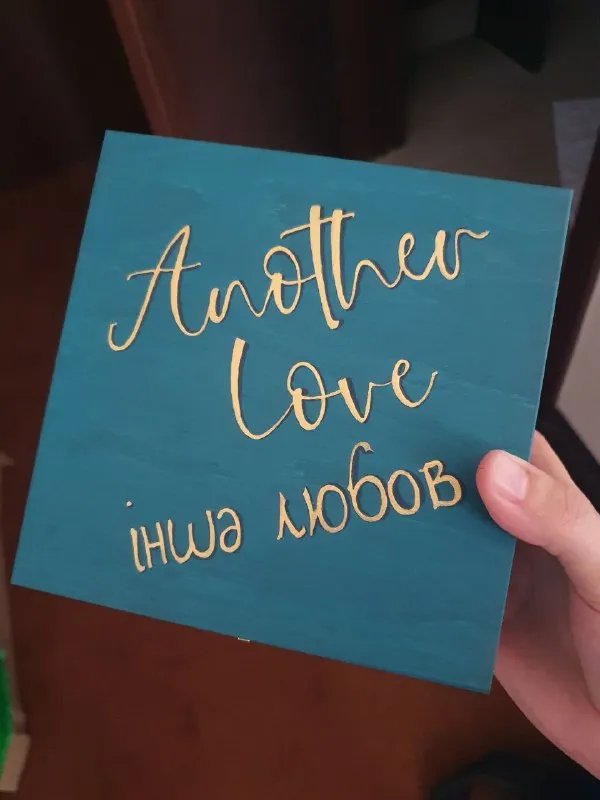 Another
Love
інша любов